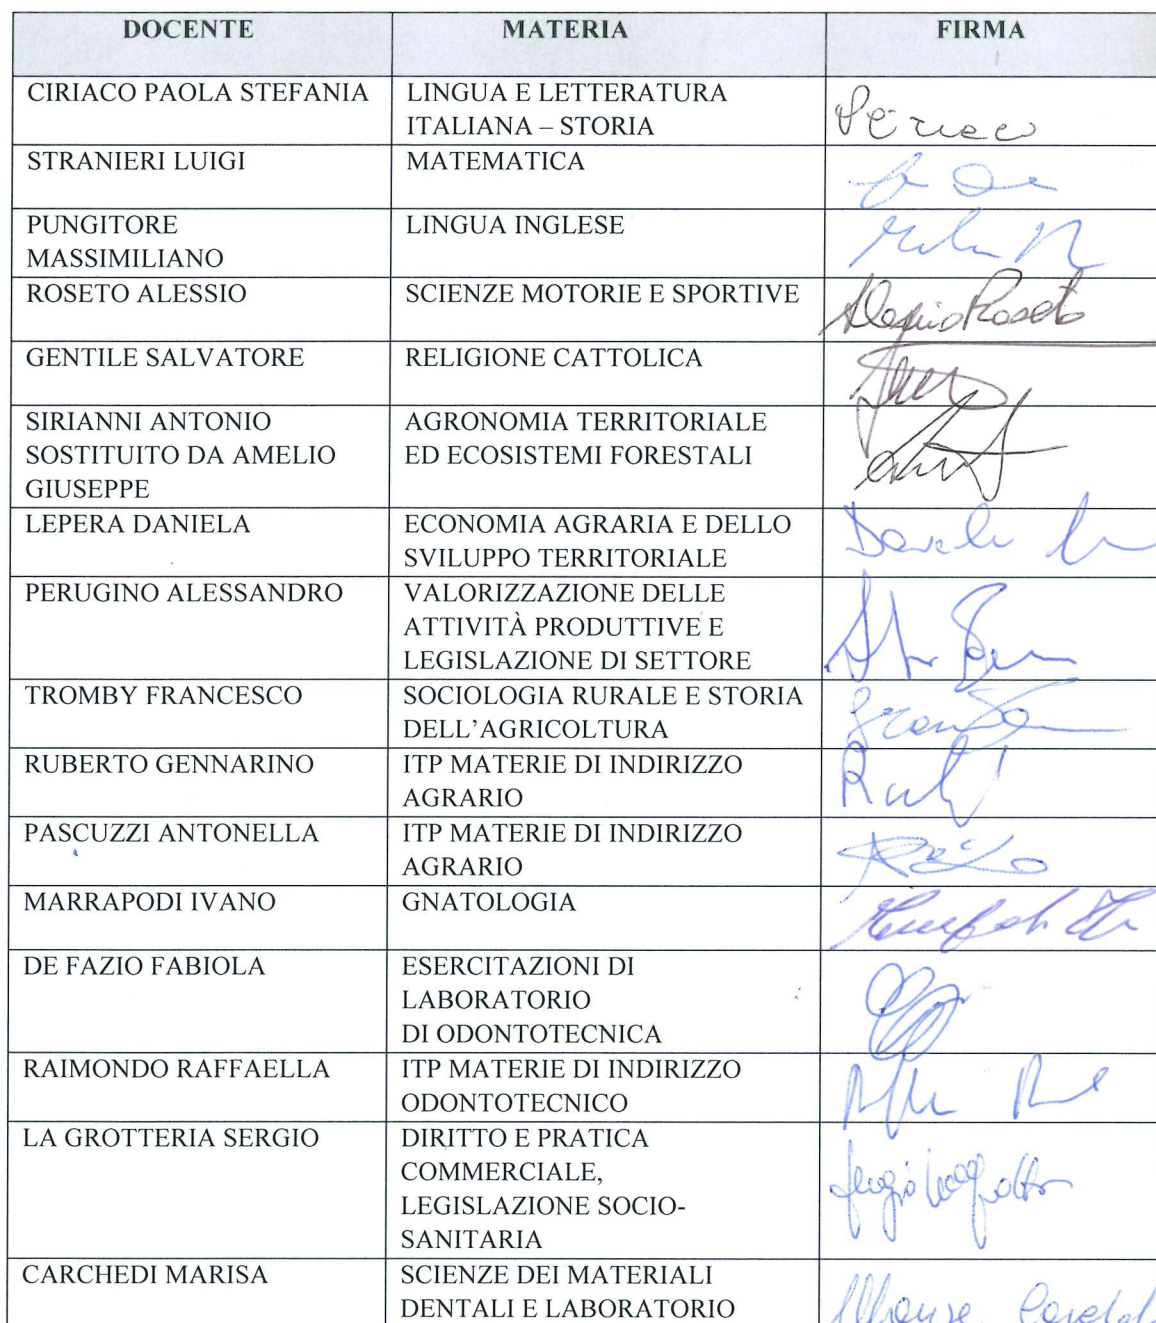 DOCENTE MATERIA FIRMA
CIRIACO PAOLA STEFANIA LINGUA E LETTERATURA
ITALIANA – STORIA
STRANIERI LUIGI MATEMATICA
PUNGITORE LINGUA INGLESE
MASSIMILIANO
ROSETO ALESSIO SCIENZE MOTORIE E SPORTIVE Alessio Roseto
GENTILE SALVATORE RELIGIONE CATTOLICA
SIRIANNI ANTONIO AGRONOMIA TERRITORIALE
SOSTITUITO DA AMELIO ED ECOSISTEMI FORESTALI
GIUSEPPE
LEPERA DANIELA ECONOMIA AGRARIA E DELLO
SVILUPPO TERRITORIALE
PERUGINO ALESSANDRO VALORIZZAZIONE DELLE
ATTIVITÀ PRODUTTIVE E
LEGISLAZIONE DI SETTORE
TROMBY FRANCESCO SOCIOLOGIA RURALE E STORIA
DELL'AGRICOLTURA
RUBERTO GENNARINO ITP MATERIE DI INDIRIZZO
AGRARIO
PASCUZZI ANTONELLA ITP MATERIE DI INDIRIZZO
AGRARIO
MARRAPODI IVANO GNATOLOGIA
DE FAZIO FABIOLA ESERCITAZIONI DI
LABORATORIO
DI ODONTOTECNICA
RAIMONDO RAFFAELLA ITP MATERIE DI INDIRIZZO
ODONTOTECNICO
LA GROTTERIA SERGIO DIRITTO E PRATICA
COMMERCIALE,
LEGISLAZIONE SOCIO-
SANITARIA
CARCHEDI MARISA SCIENZE DEI MATERIALI
DENTALI E LABORATORIO